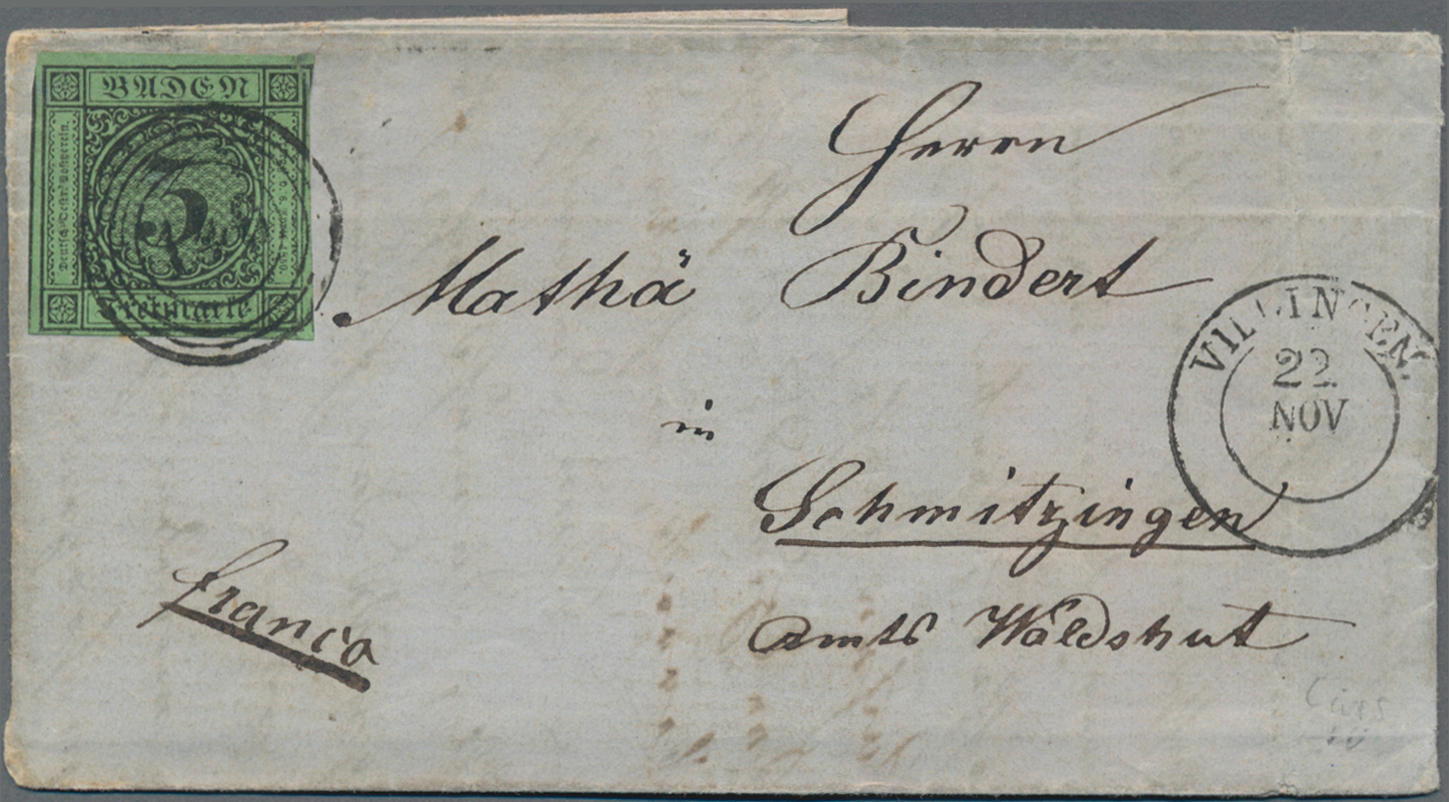 BADEN
Deutsch-Oestr. Postverein.
3
Freimarke.
Herrn
Mathä Bindert
in
Schmitzingen
Amts Waldshut
franco
VILLINGEN.
22
NOV